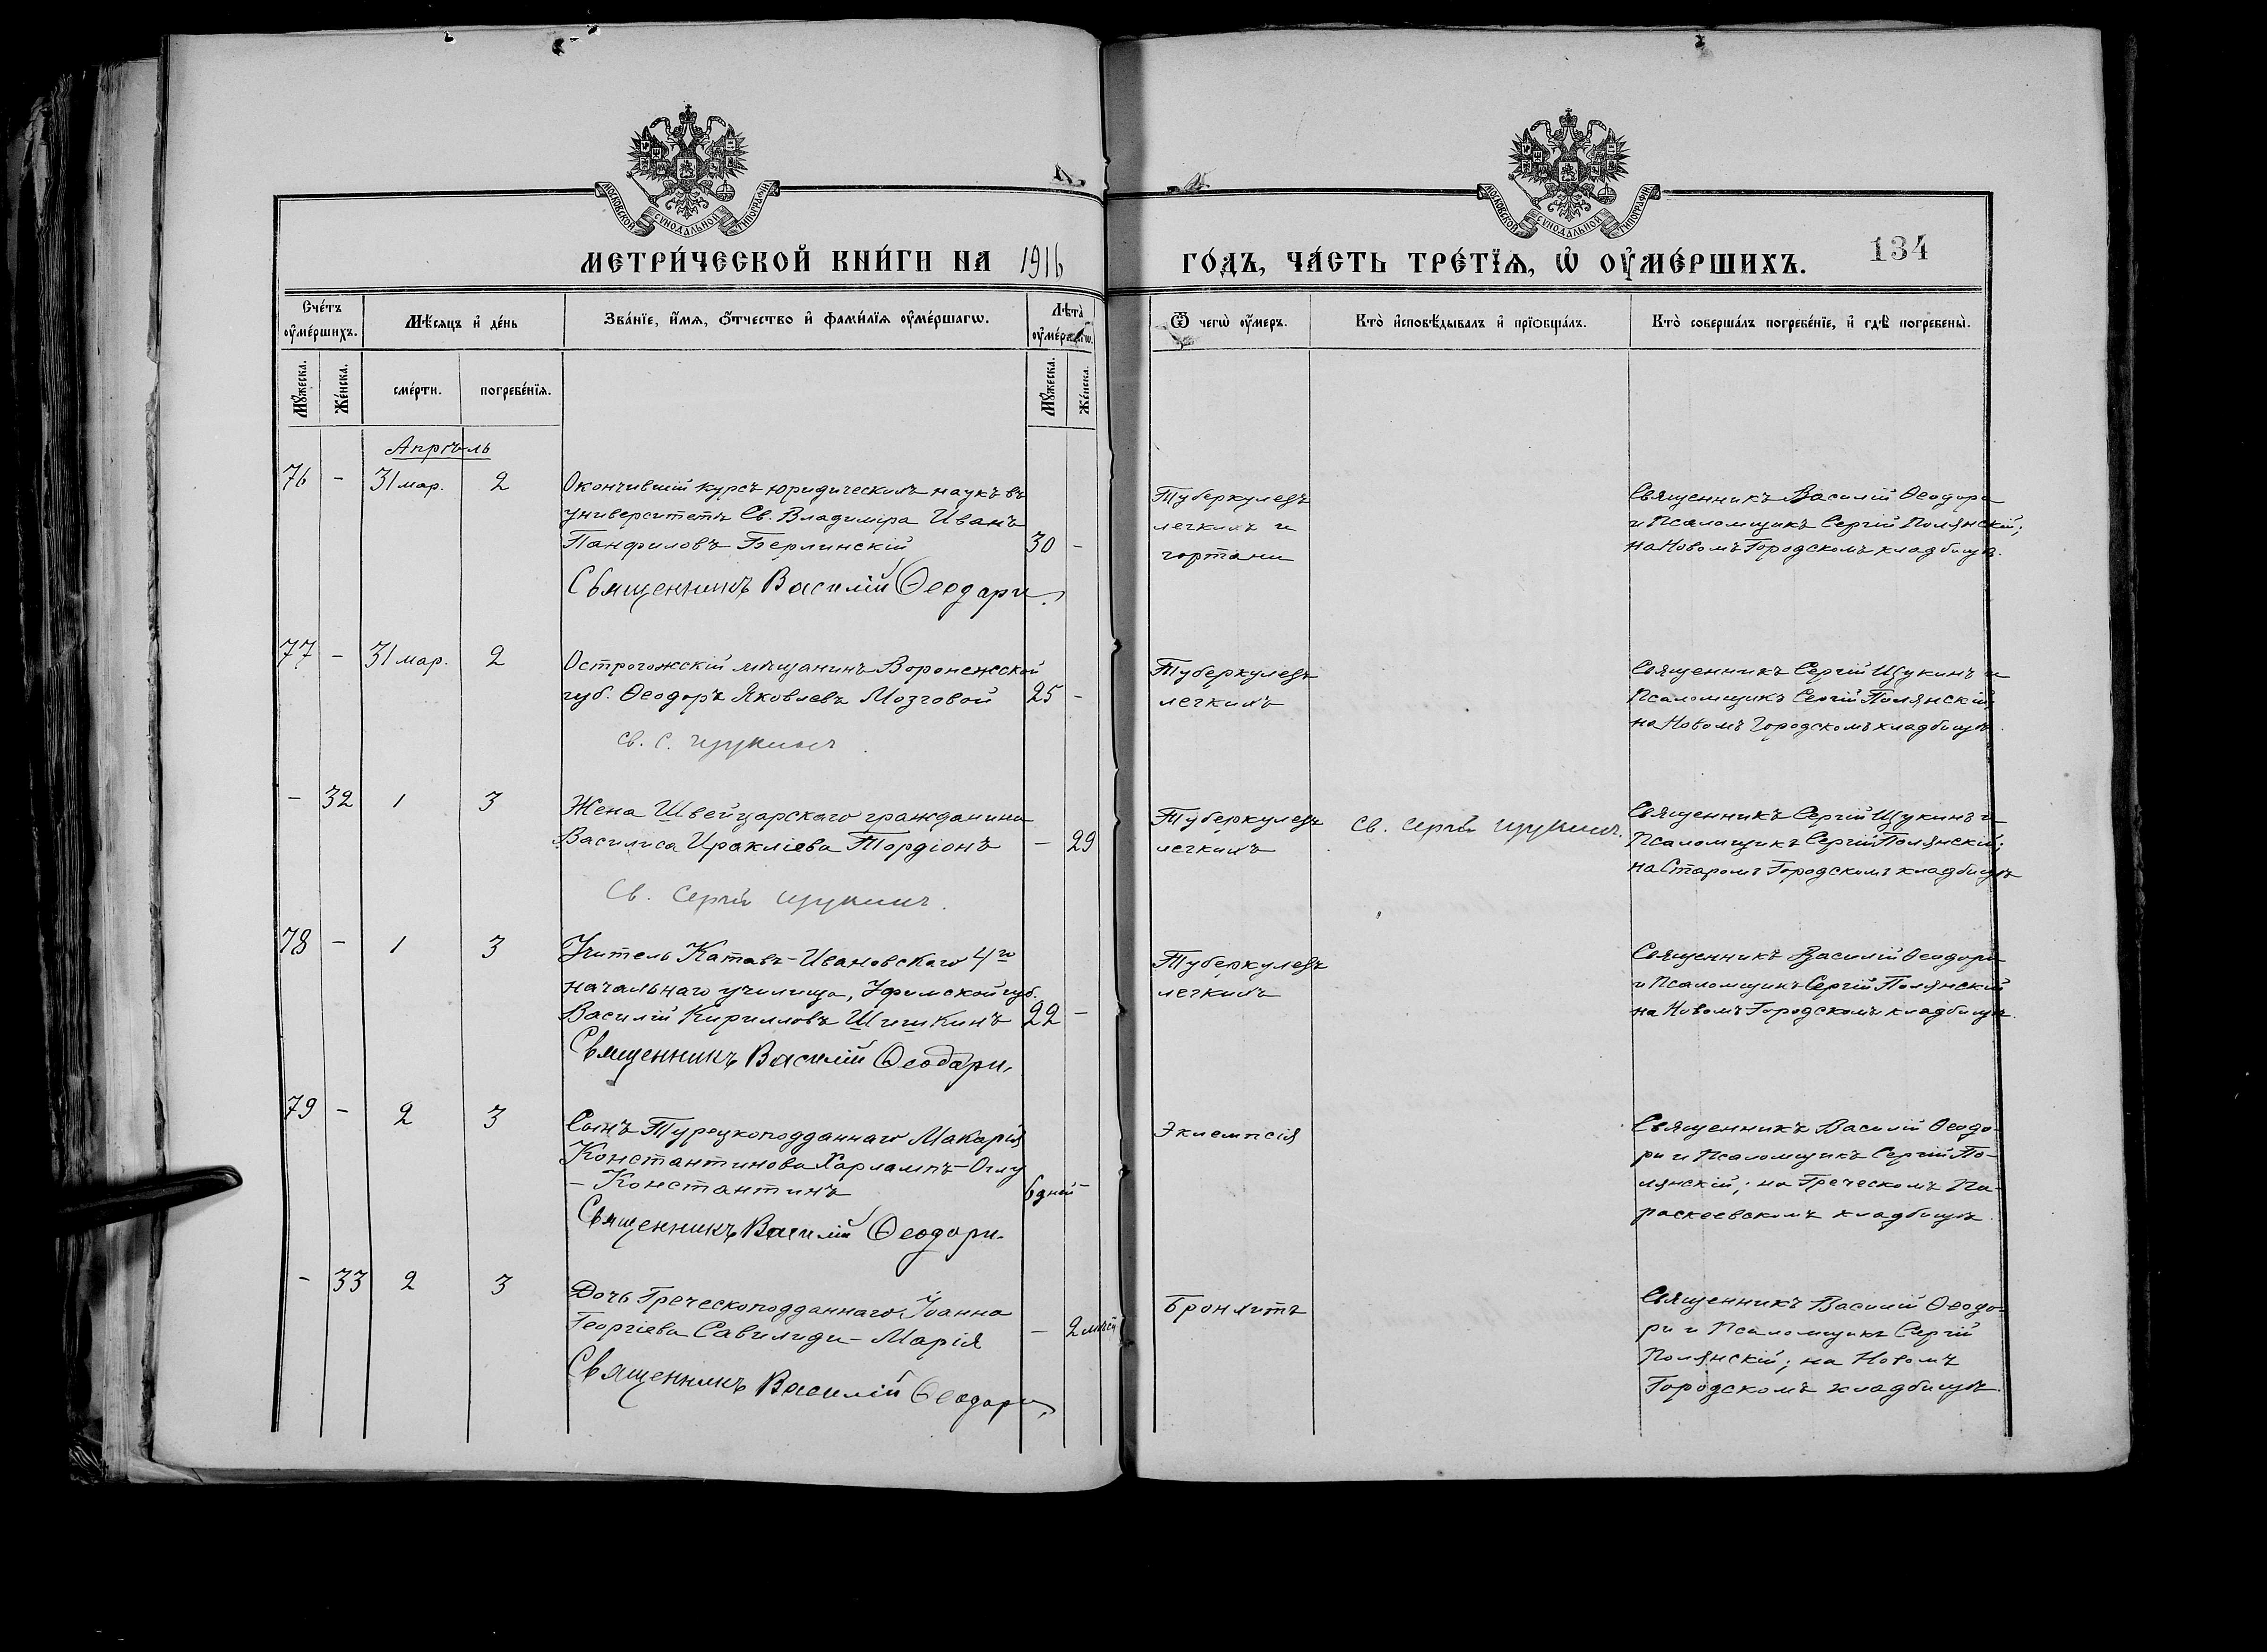 МОСКОВСКОЙ СУНОДАЛЬНОЙ ТИПОГРАФІИ
МОСКОВСКОЙ СУНОДАЛЬНОЙ ТИПОГРАФІИ
МЕТРИ́ЧЕСКОЙ КНИ́ГИ НА 1916
ГО́ДЪ, ЧА́СТЬ ТРЕ́ТЇѦ, Ѡ҆ ОУ҆МЕ́РШИХЪ.
134
Сче́тъ оу҆ме́ршихъ.
Мѣ́сѧцъ и҆ де́нь
Зва́нїе, и҆́мѧ, ѻ҆́тчество и҆ фами́лїѧ оу҆ме́ршагѡ.
Лѣта̀ оу҆ме́ршагѡ.
Ѿ чегѡ̀ оу҆́меръ.
Кто̀ и҆сповѣ́дывалъ и҆ прїѡбща́лъ.
Кто̀ соверша́лъ погребе́нїе, и҆ гдѣ̀ погребены̀.
Мꙋ́жеска.
Же́нска.
сме́рти.
погребе́нїѧ.
Мꙋ́жеска.
Же́нска.
Апрѣль
76 - 31 мар. 2
Окончившій курсъ юридическихъ наукъ въ
университетѣ Св. Владиміра Иванъ
Панфиловъ Берлинскій 30 -
Священникъ Василій Ѳеодори.
Туберкулезъ
легкихъ и
гортани
Священникъ Василій Ѳеодори
и Псаломщикъ Сергій Полянскій;
на Новомъ Городскомъ кладбищѣ.
77 - 31 мар. 2
Острогожскій мѣщанинъ Воронежской
губ. Ѳеодоръ Яковлевъ Мозговой 25 -
Св. С. Щукинъ.
Туберкулезъ
легкихъ
Священникъ Сергій Щукинъ и
Псаломщикъ Сергій Полянскій;
на Новомъ Городскомъ кладбищѣ.
- 32 1 3
Жена Швейцарскаго гражданина
Василиса Ираклiева Тордіонъ - 29
Св. Сергій Щукинъ.
Туберкулезъ
легкихъ
Св. Сергій Щукинъ.
Священникъ Сергій Щукинъ и
Псаломщикъ Сергій Полянскій;
на Старомъ Городскомъ кладбищѣ
78 - 1 3
Учитель Катавъ-Ивановскаго 4го
начальнаго училища, Уфимской губ.
Василій Кирилловъ Шишкинъ 22 -
Священникъ Василій Ѳеодори.
Туберкулезъ
легкихъ
Священникъ Василій Ѳеодори
и Псаломщикъ Сергій Полянскій
на Новомъ Городскомъ кладбищѣ.
79 - 2 3
Сынъ Турецкоподданнаго Макарія
Константинова Харлампъ-Оглу
- Константинъ 6 дней -
Священникъ Василій Ѳеодори.
Эклемпсія
Священникъ Василій Ѳеодо-
ри и Псаломщикъ Сергій По-
лянскій; на Греческомъ Па-
раскевскомъ кладбищѣ.
- 33 2 3
Дочь Греческоподданнаго Іоанна
Георгіева Савилиди - Марія - 2 мѣс.
Священникъ Василій Ѳеодори.
Бронхитъ
Священникъ Василій Ѳеодо-
ри и Псаломщикъ Сергій
Полянскій; на Новомъ
Городскомъ кладбищѣ.